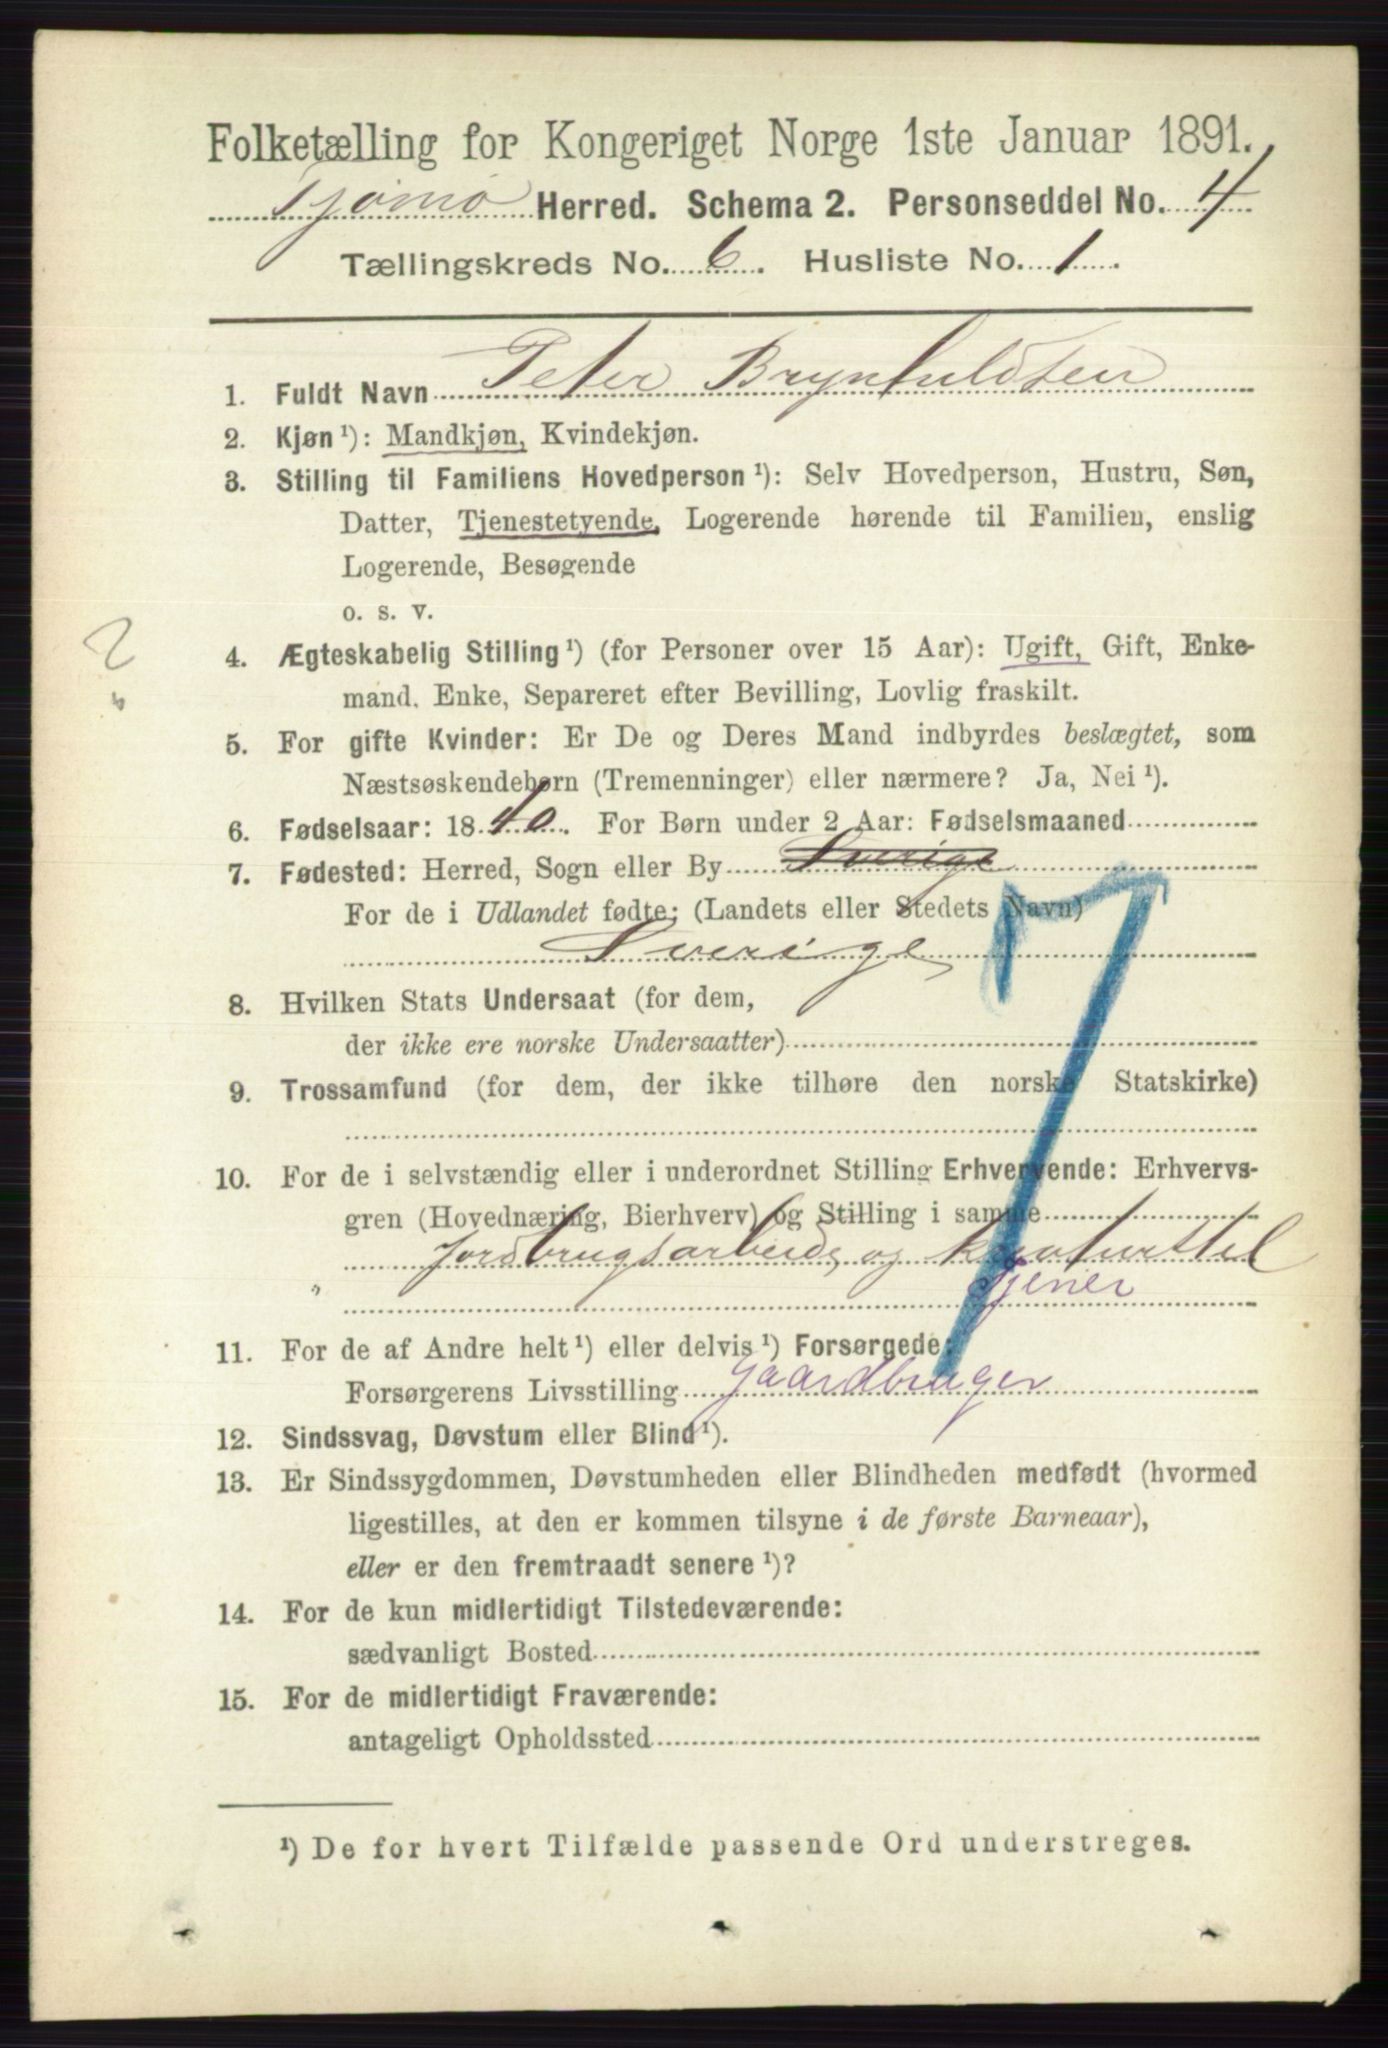 Folketælling for Kongeriget Norge 1ste Januar 1891.
Tjømø Herred. Schema 2. Personseddel No. 4
Tællingskreds No. 6. Husliste No. 1.
1. Fuldt Navn Peter Brynhuldsen
2. Kjøn¹): Mandkjøn, Kvindekjøn.
3. Stilling til Familiens Hovedperson¹): Selv Hovedperson, Hustru, Søn,
Datter, Tjenestetyende, Logerende hørende til Familien, enslig
Logerende, Besøgende
o. s. v.
2
4. Ægteskabelig Stilling¹) (for Personer over 15 Aar): Ugift, Gift, Enke-
mand, Enke, Separeret efter Bevilling, Lovlig fraskilt.
5. For gifte Kvinder: Er De og Deres Mand indbyrdes beslægtet, som
Næstsøskendebørn (Tremenninger) eller nærmere? Ja, Nei¹).
6. Fødselsaar: 1840. For Børn under 2 Aar: Fødselsmaaned
7. Fødested: Herred, Sogn eller By Sverige
For de i Udlandet fødte; (Landets eller Stedets Navn)
Sverige
8. Hvilken Stats Undersaat (for dem,
der ikke ere norske Undersaatter)
9. Trossamfund (for dem, der ikke tilhøre den norske Statskirke)
7
10. For de i selvstændig eller i underordnet Stilling Erhvervende: Erhvervs-
gren (Hovednæring, Bierhverv) og Stilling i samme
Jordbrugsarbeide og kreaturstel
" Tjener
11. For de af Andre helt¹) eller delvis¹) Forsørgede:
Forsørgerens Livsstilling Gaardbruger
12. Sindssvag, Døvstum eller Blind¹).
13. Er Sindssygdommen, Døvstumheden eller Blindheden medfødt (hvormed
ligestilles, at den er kommen tilsyne i de første Barneaar),
eller er den fremtraadt senere¹)?
14. For de kun midlertidigt Tilstedeværende:
sædvanligt Bosted
15. For de midlertidigt Fraværende:
antageligt Opholdssted
¹) De for hvert Tilfælde passende Ord understreges.